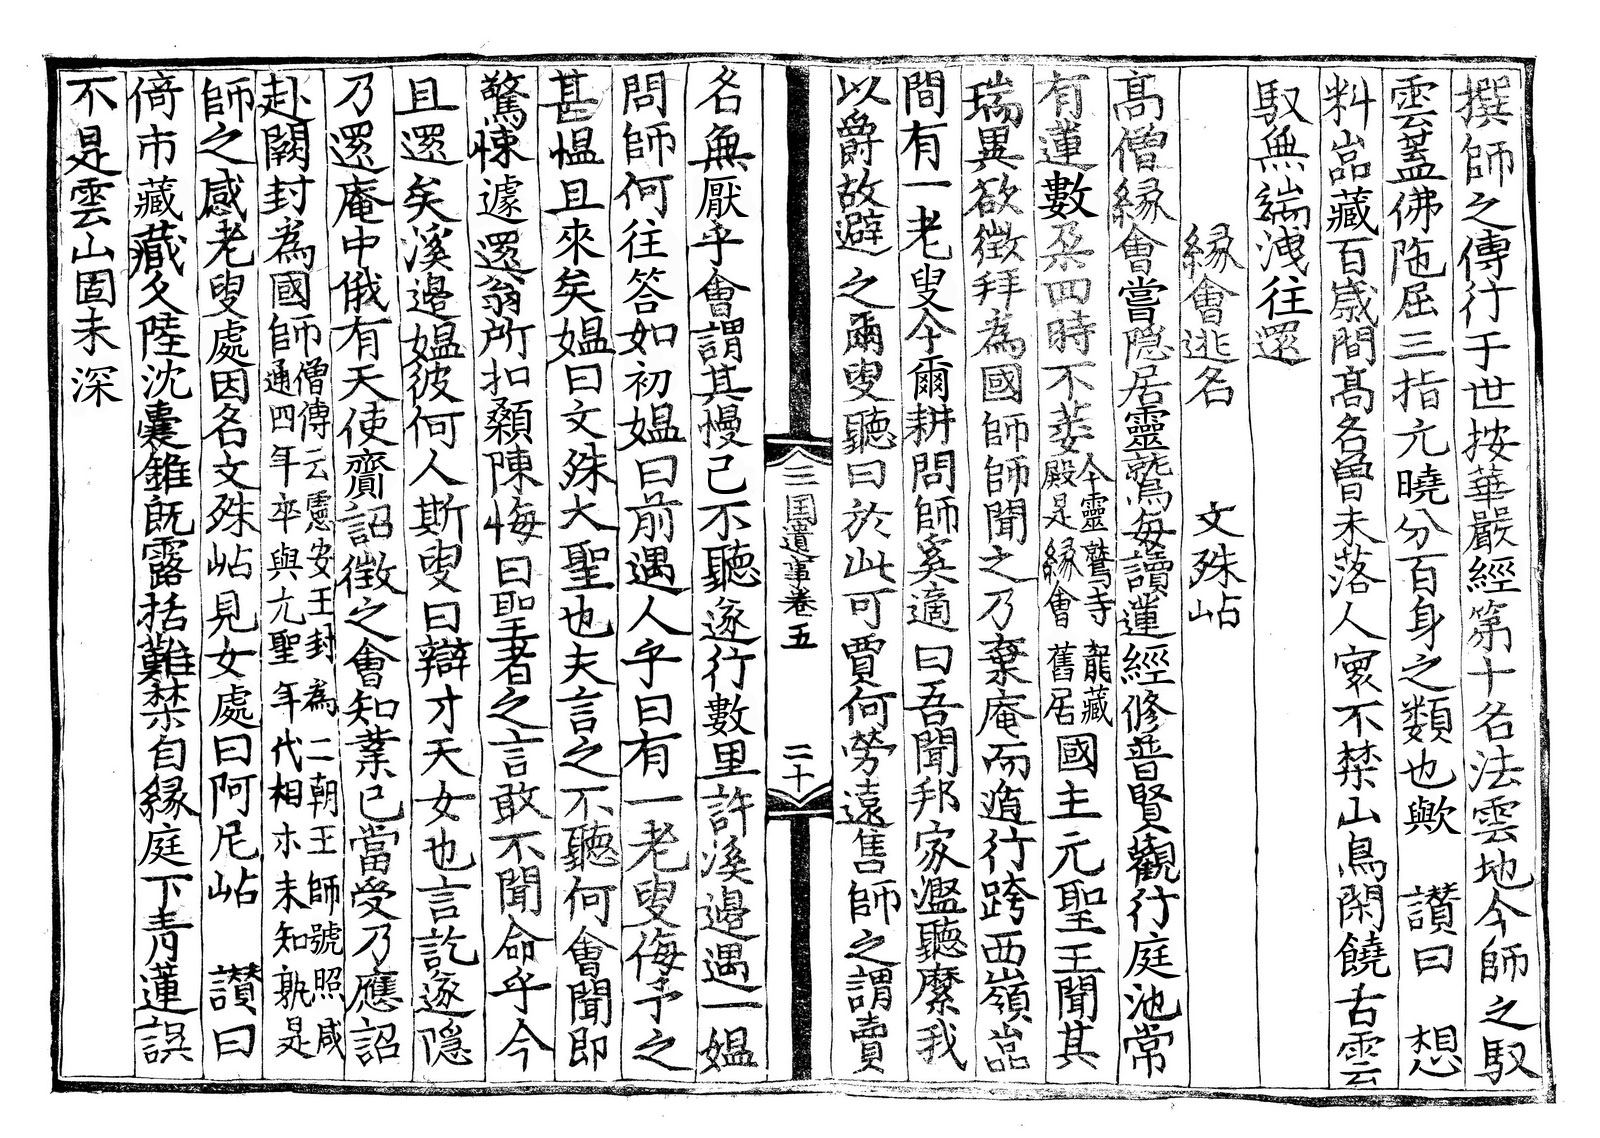 撰師之傳行于世按華嚴經第十名法雲地今師之馭
雲盖佛陁屈三指元曉分百身之類也歟 讃曰 想
料嵓藏百嵗間髙名曽未落人寰不禁山鳥閑饒舌雲
馭無端洩往還
縁會逃名 文殊岾
髙僧縁會嘗隠居靈鷲每讀蓮經修普賢觀行庭池常
有蓮數朶四時不萎今靈鷲寺龍藏殿是縁會舊居國主元聖王聞其
瑞異欲徴拜為國師師聞之乃棄庵而遁行跨西嶺嵓
間有一老叟今爾耕問師奚適曰吾聞邦家濫聽縻我
以爵故避之爾叟聽曰於此可賈何勞遠售師之謂賣
名無厭乎會謂其慢己不聽遂行數里許溪邉遇一媼
問師何往荅如初媼曰前遇人乎曰有一老叟侮予之
甚愠且來矣媼曰文殊大聖也夫言之不聽何會聞即
驚悚遽還翁所扣顙陳悔曰聖者之言敢不聞命乎今
且還矣溪邉媼彼何人斯叟曰辯才天女也言訖遂隠
乃還庵中俄有天使齎詔徴之會知業已當受乃應詔
赴闕封為國師僧傳云憲安王封為二朝王師號照咸通四年卒與元聖年代相木未知孰是
師之感老叟處因名文殊岾見女處曰阿尼岾 讃曰
倚市藏藏久陸沈囊錐既露括難禁自縁庭下青蓮誤
不是雲山固未深
三国遺事卷五 二十